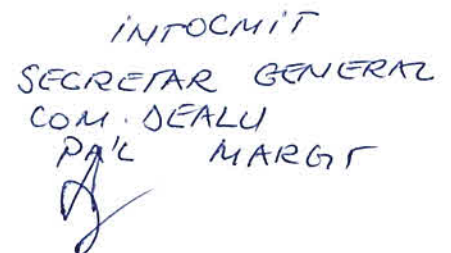 INTOCMIT
SECRETAR GENERAL
COM. DEALU
PA'L MARGIT